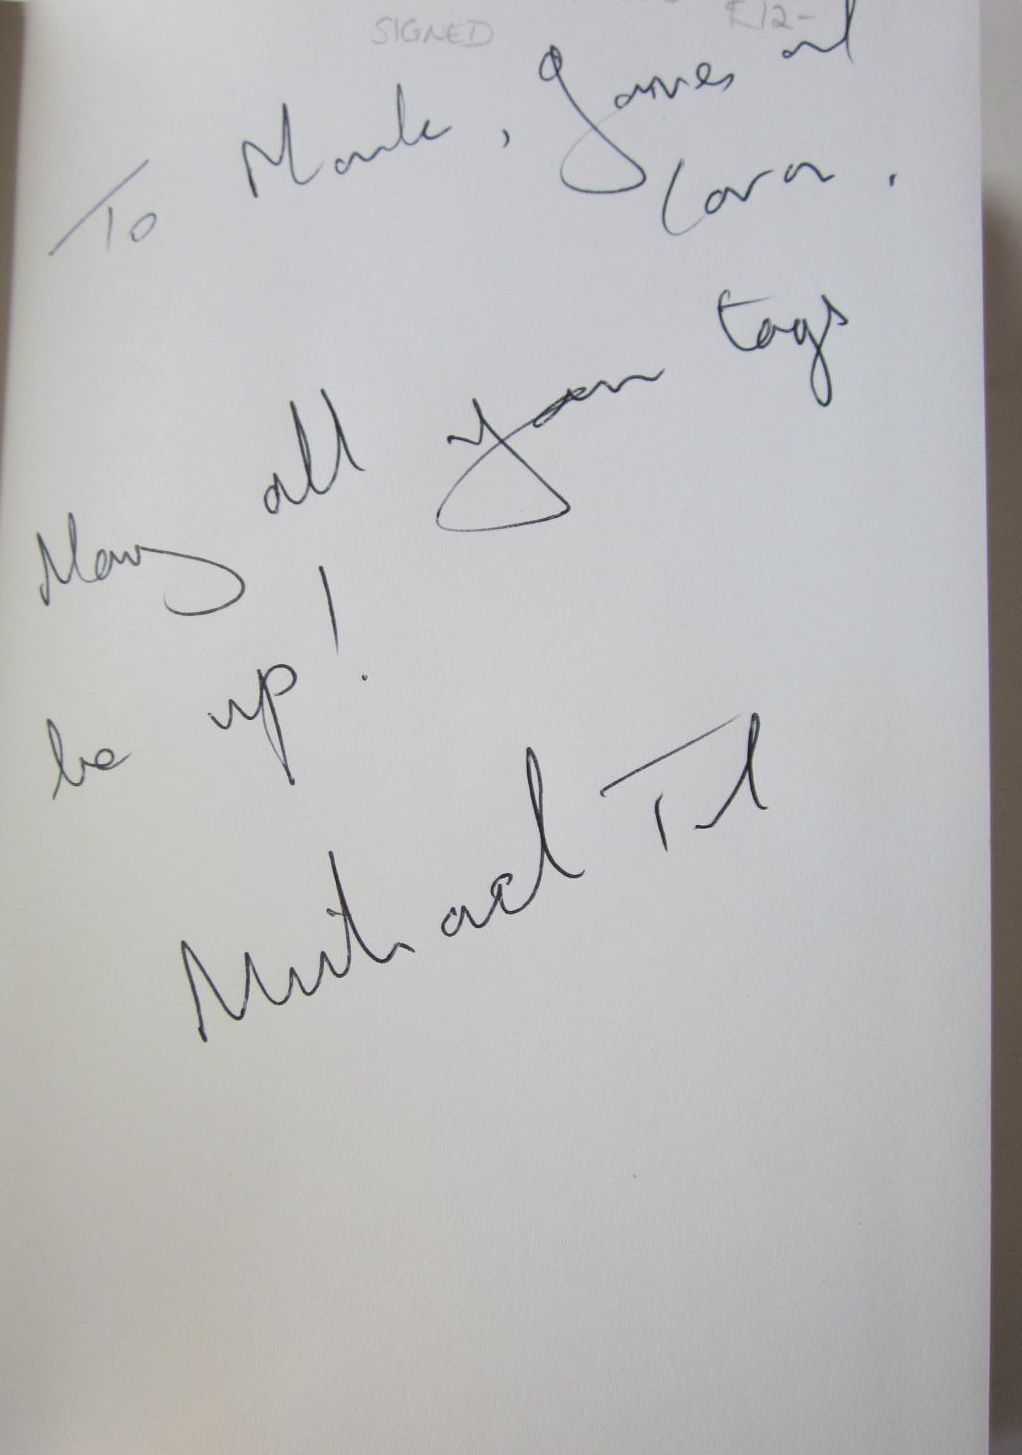 SIGNED £12-
To Mark, James and
Lara.
May all your tags
be up!
Michael